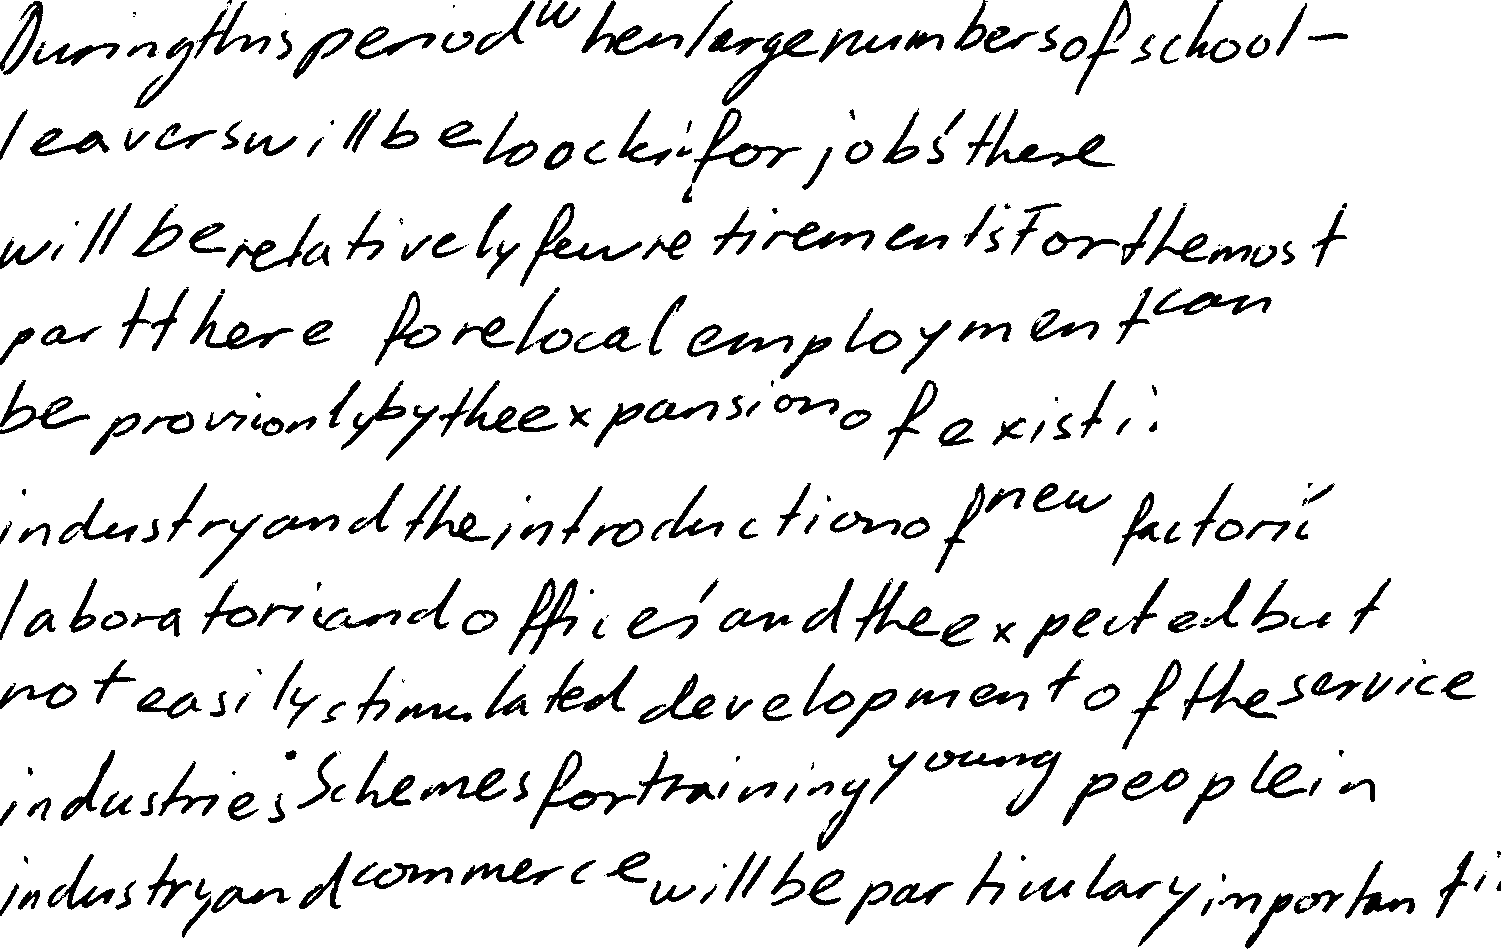 During this period when large numbers of school-
leavers will be loocki for jobs' there
will be relatively few retirements For the most
part there fore local employment can
be only by the expansion of existi.
industry and the introduction of new factori
laboratori and offices' and the expected but
not easily stimulated development of the service
industries. Schemes for training young people in
industry and commerce will be particulary important i